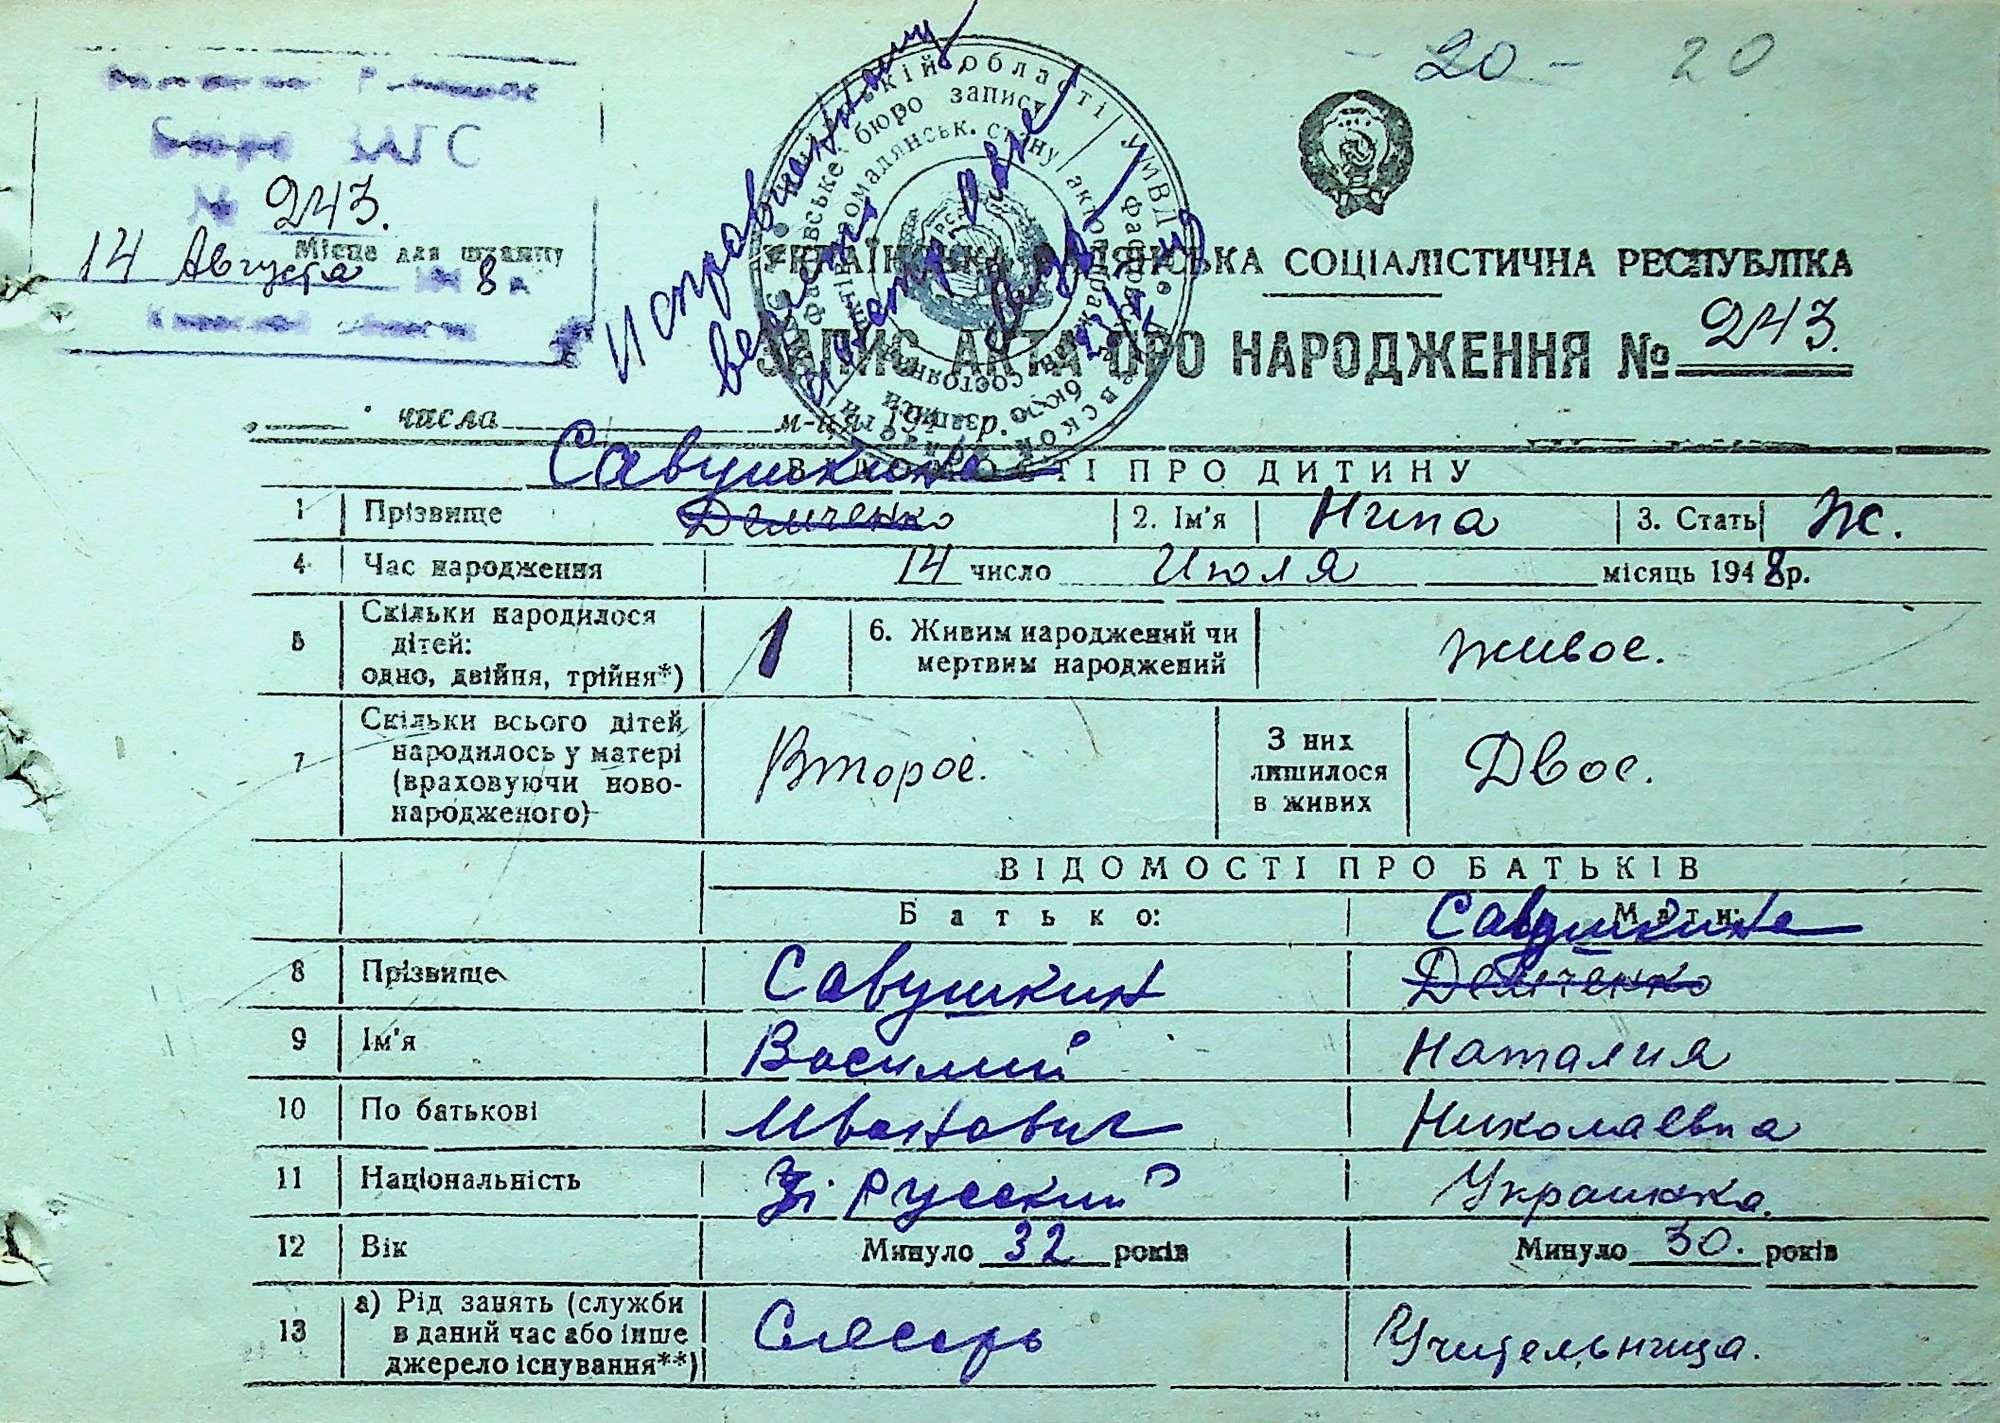 - 20 - 20
Бюро ЗАГС
№ 243.
Місце для штампу
14 Августа 8
УКРАЇНСЬКА РАДЯНСЬКА СОЦІАЛІСТИЧНА РЕСПУБЛІКА
Исправленному
верить
ЗАПИС АКТА ПРО НАРОДЖЕННЯ № 243.
числа м-ця 194 р.
Савушкина
ВІДОМОСТІ ПРО ДИТИНУ
1 Прізвище Демченко 2. Ім'я Нина 3. Стать Ж.
4 Час народження 14 число Июля місяць 1948 р.
5 Скільки народилося дітей: одно, двійня, трійня*) 1 6. Живим народжений чи мертвим народжений живое.
7 Скільки всього дітей народилось у матері (враховуючи ново-народженого) Второе. З них лишилося в живих Двое.
ВІДОМОСТІ ПРО БАТЬКІВ
Батько: Мати:
Савушкина
8 Прізвище Савушкин Демченко
9 Ім'я Василий Наталия
10 По батькові Иванович Николаевна
11 Національність Русский Украинка.
12 Вік Минуло 32 років Минуло 30. років
13 а) Рід занять (служби в даний час або інше джерело існування**) Слесарь Учительница.